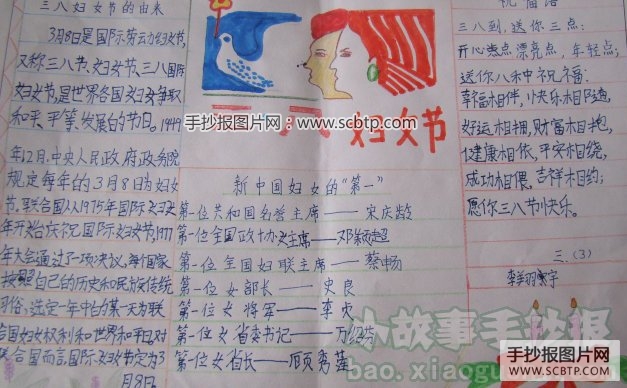 三八妇女节的由来
3月8日是国际劳动妇女节,
又称三八节、妇女节、三八国际
妇女节,是世界各国妇女争取
和平、平等、发展的节日。1949
年12月,中央人民政府政务院
规定每年的3月8日为妇女
节。联合国从1975年国际妇女
年开始庆祝国际妇女节,1977
年大会通过了一项决议,每个国家
按照自己的历史和民族传统
习俗,选定一年中的某一天为联
合国妇女权利和世界和平日,对
联合国而言,国际妇女节定为3
月8日。
三八妇女节
手抄报图片网:www.scbtp.com
新中国妇女的“第一”
第一位共和国名誉主席——宋庆龄
第一位全国政协女主席——邓颖超
第一位全国妇联主席——蔡畅
第一位女部长——史良
第一位女将军——李贞
第一位女省委书记——万绍芬
第一位女省长——顾秀莲
祝福语
三八到,送你三点:
开心点漂亮点,年轻点;
送你八种祝福:
幸福相伴,快乐相随,
好运相拥,财富相抱,
健康相依,平安相绕,
成功相偎,吉祥相约;
愿你三八节快乐。
三.(3)
李羽寰宇
小故事手抄报
bao.xiaogu
手抄报图片网
WWW.SCBTP.COM